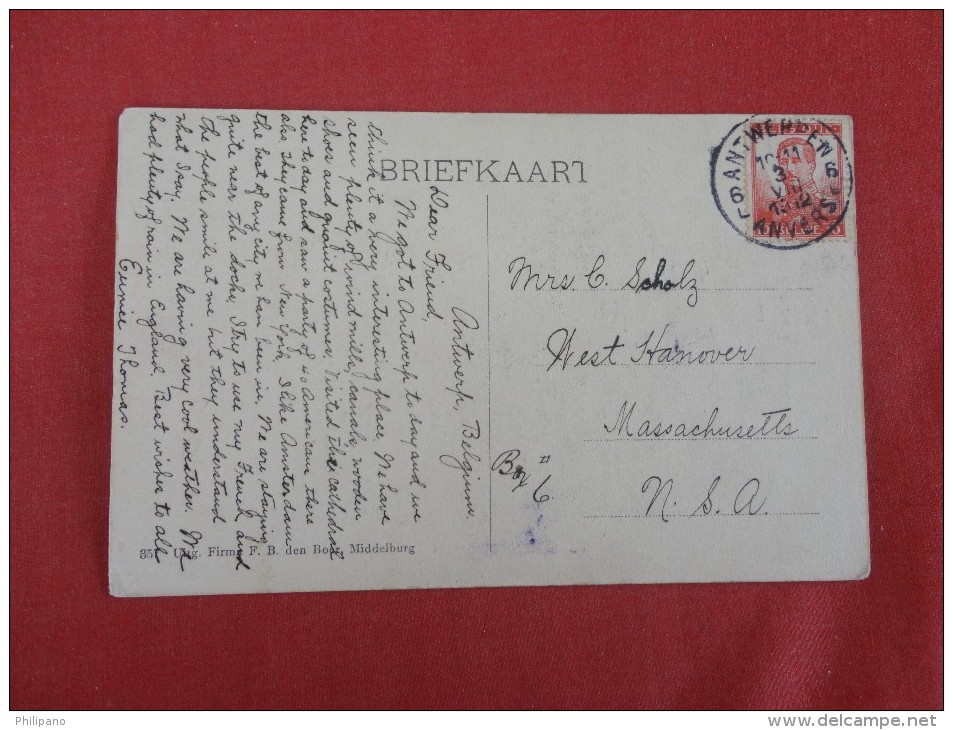 BRIEFKAART
Antwerp, Belgium.
Dear Friend,
We got to Antwerp to day and we
think it a very interesting place. We have
seen plenty of wind mills, canals, wooden
shoes and quaint costumes. Visited the cathedral
here to day and saw a party of 40 Americans there
also. They came from New York. I like Amsterdam
the best of any city we han been in. We are staying
quite near the docks, I try to use my French and
the people smile at me but they understand
what I say. We are having very cool weather. We
had plenty of rain in England. Best wishes to all
Eunice Thomas.
Mrs. C. Scholz
West Hanover
Massachusetts
Box # 6
U. S. A.
ANTWERPEN 6
10-11
3
VII
1912
6 ANVERS
Uitg. Firma F. B. den Boer, Middelburg
Philipano
www.delcampe.net